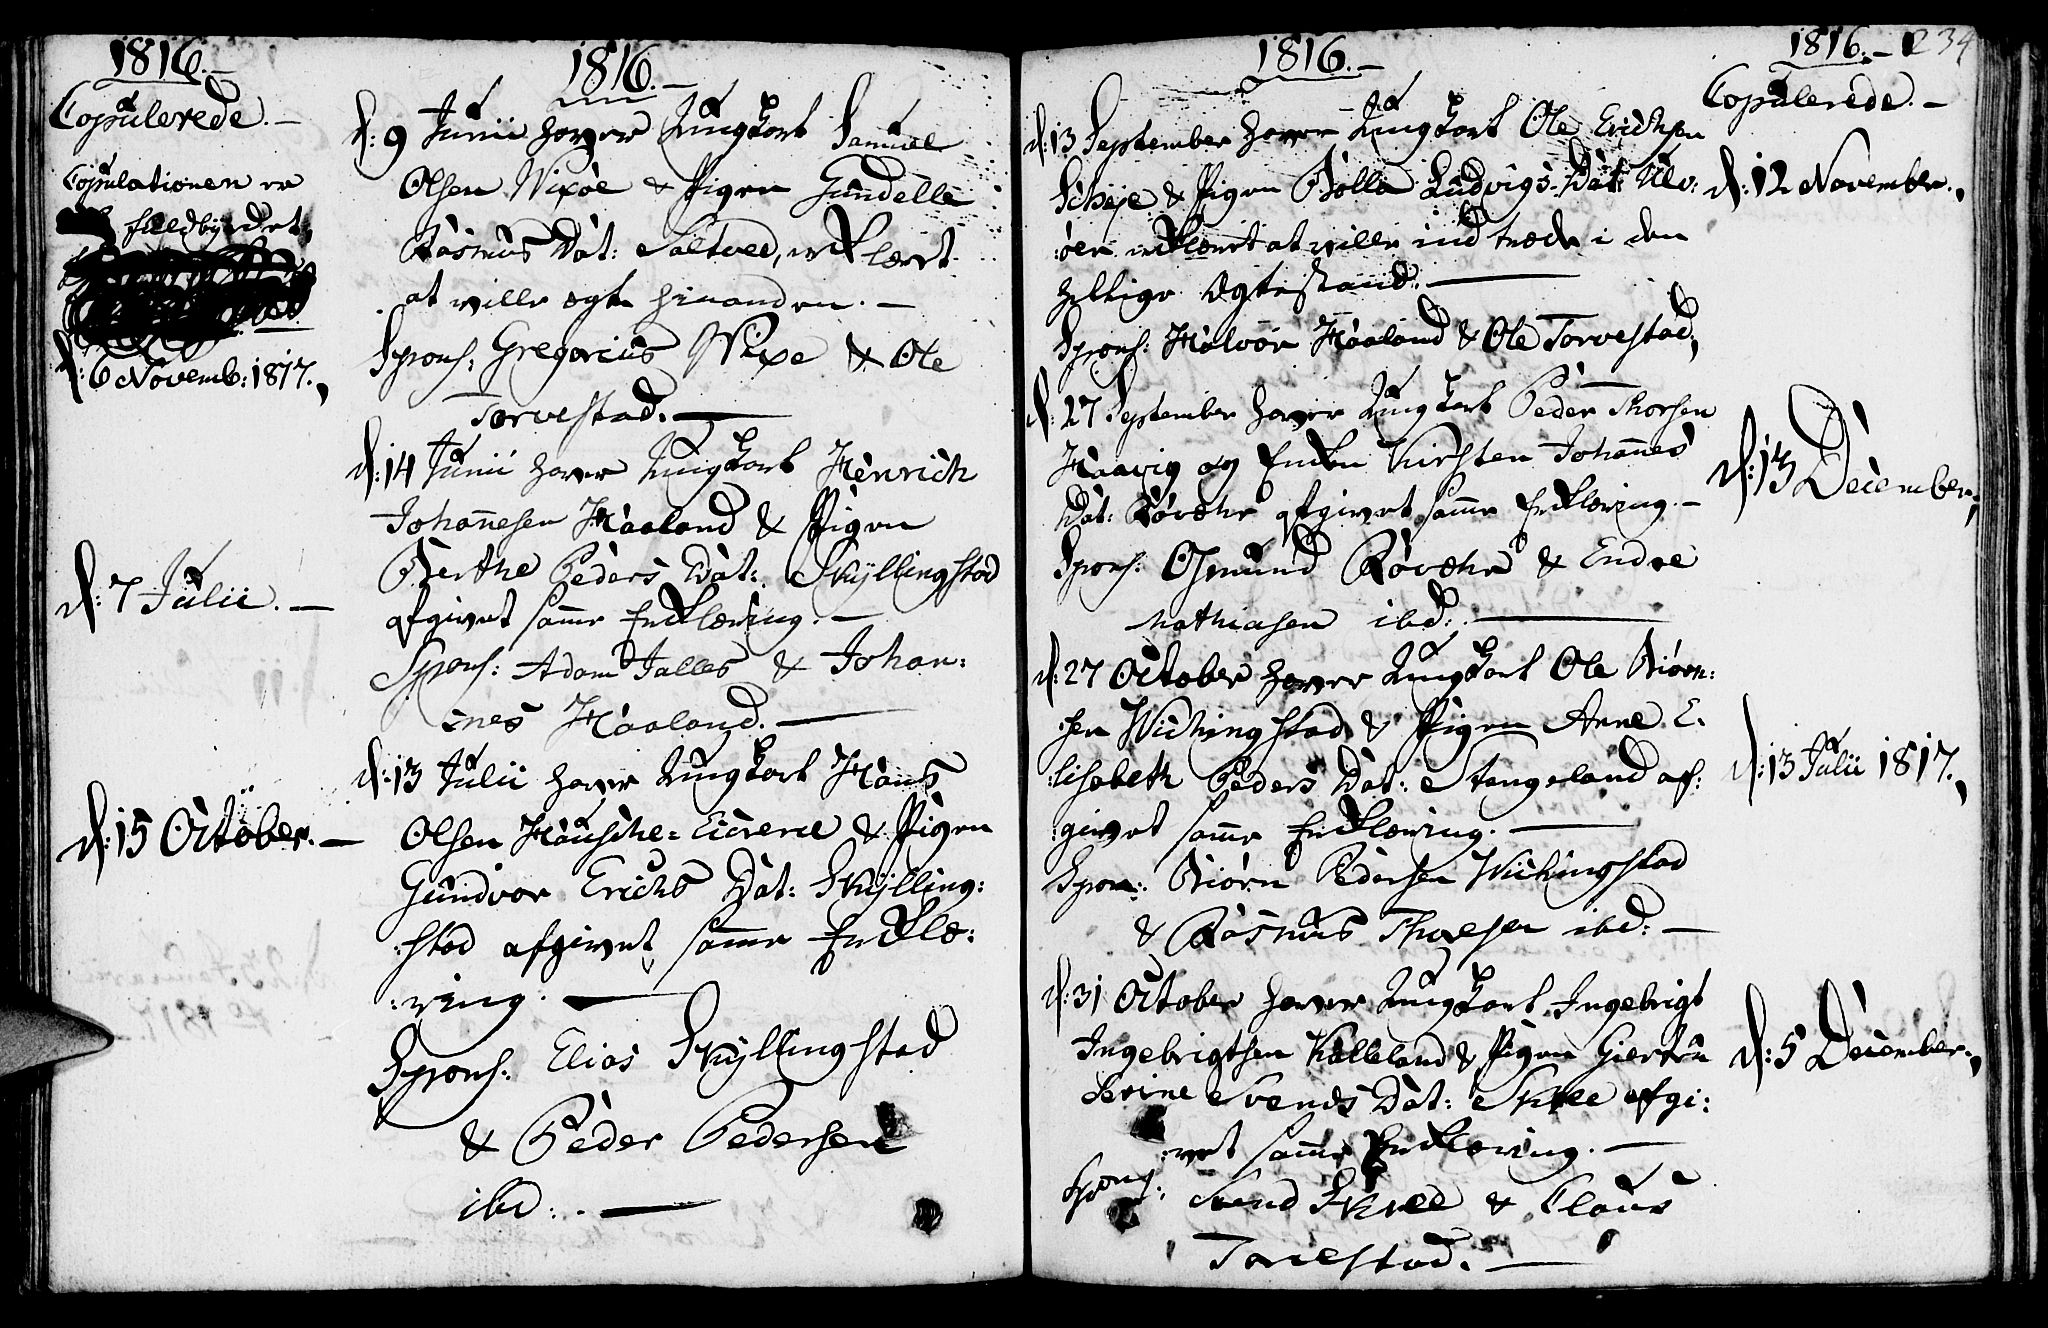 1816.-
Copulerede.-
Copulationen er
fuldbyrdet,
d: 6 Novemb: 1817.,
d: 7 Julii.-
d: 15 October.-
1816.-
d: 9 Junii haver Ungkarl Samuel
Olsen Wixøe & Pigen Gundelle
Rasmus Dat: Saltved, erklæret
at ville ægte hinanden.-
Spons: Gregorius Wixe & Ole
Torvestad.-
d: 14 Junii haver Ungkarl Henrich
Johannesen Haaland & Pigen
Berthe Peders Dat: Skyllingstad
afgivet samme Erklæring.-
Spons: Adam Jalles & Johan:
:nes Haaland.-
d: 13 Julii haver Ungkarl Hans
Olsen Hausche= & Pigen
Gundvor Erichs Dat: Skylling:
:stad afgivet samme Erklæ:
:ring.-
Spons: Elias Skyllingstad
& Peder Pedersen
ibd:.-
1816.-
d: 13 September haver Ungkarl Ole Erichsen
Scheje & Pigen Bolla Ludvigs Dat: Ulv:
:øen erklæret at ville indtræde i den
hellige Ægtestand.-
Spons: Halvor Haaland & Ole Torvestad,
d: 27 September haver Ungkarl Peder Thorsen
Haavig og Enken Kirsten Johannes
Dat: Røvæhr afgivet samme Erklæring.-
Spons: Osmund Røvæhr & Endre
Mathiasen ibd:.-
d: 27 October haver Ungkarl Ole Biørn:
:sen Wichingstad & Pigen Anne E:
:lisabeth Peders Dat: Stangeland af:
:givet samme Erklæring.-
Spons: Biørn Pedersen Wichingstad
& Rasmus Thorsen ibd:-
d: 31 October haver Ungkarl Ingebrigt
Ingebrigtsen Kalleland & Pigen Giertru
Serine Svends Dat: Skree afgi:
:vet samme Erklæring.-
Spons: Svend Skree & Claus
Torvestad.-
1816.- 234
Copulerede.-
d: 12 November.,
d: 13 December.,
d: 13 Julii 1817.,
d: 5 December.,